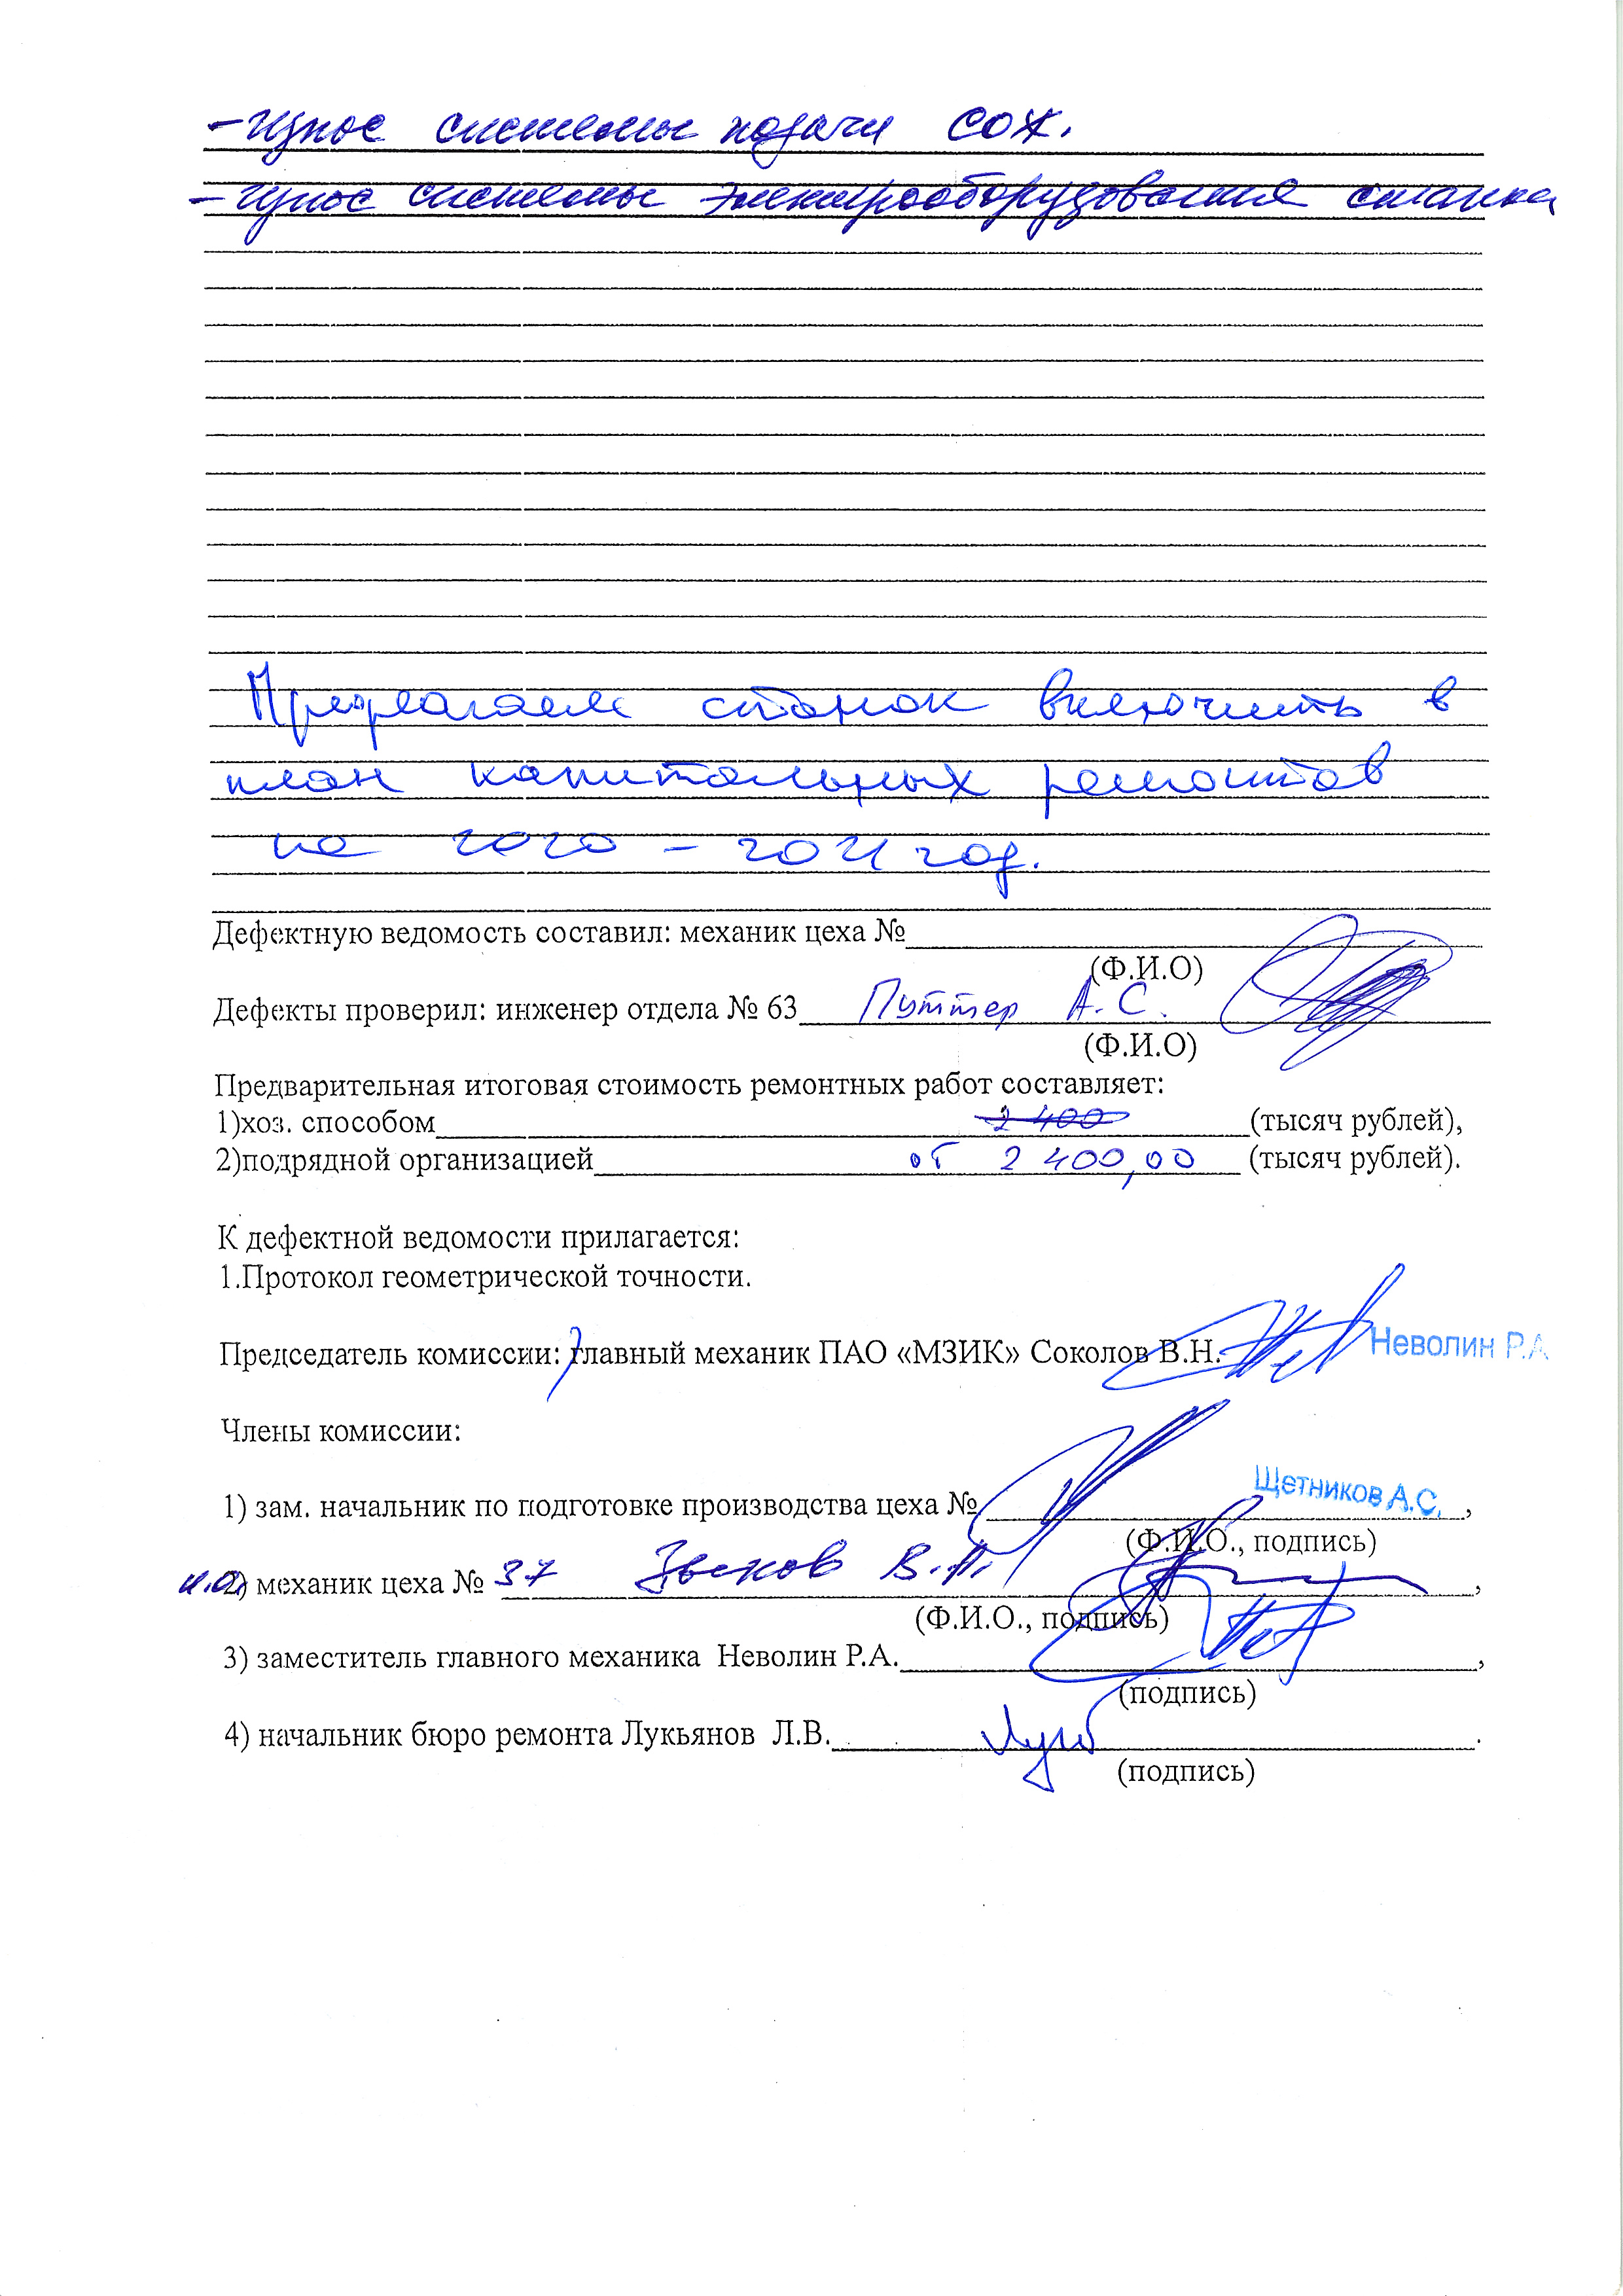 - Износ системы подачи СОЖ.
- Износ системы электрооборудования станка
Предлагаем станок включить в
план капитальных ремонтов
на 2020 - 2021 год.
Дефектную ведомость составил: механик цеха №
(Ф.И.О)
Дефекты проверил: инженер отдела № 63 Путтер А. С.
(Ф.И.О)
Предварительная итоговая стоимость ремонтных работ составляет:
1)хоз. способом 2 400 (тысяч рублей),
2)подрядной организацией от 2 400,00 (тысяч рублей).
К дефектной ведомости прилагается:
1.Протокол геометрической точности.
Председатель комиссии: главный механик ПАО «МЗИК» Соколов В.Н. Неволин Р.А
Члены комиссии:
1) зам. начальник по подготовке производства цеха № Щетников А.С. ,
(Ф.И.О., подпись)
и.о. 2) механик цеха № 37 В.А. ,
(Ф.И.О., подпись)
3) заместитель главного механика Неволин Р.А. ,
(подпись)
4) начальник бюро ремонта Лукьянов Л.В. .
(подпись)